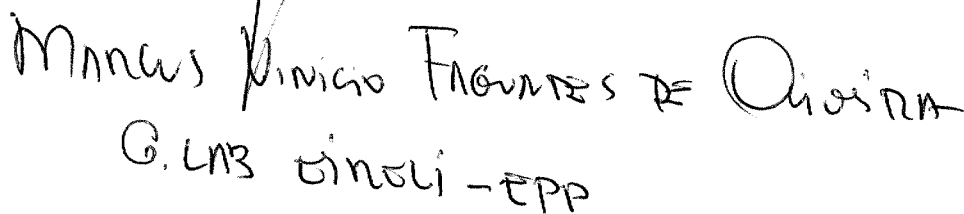 Marcus Vinicio Fagundes de Oliveira
G. LAB EIRELI - EPP